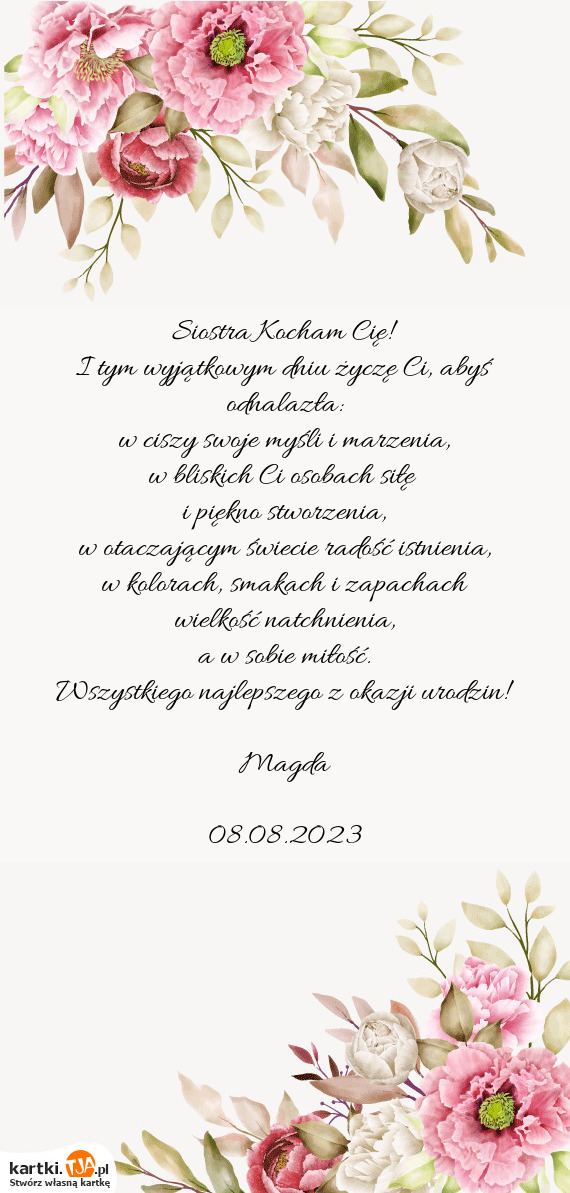 Siostra Kocham Cię!
I tym wyjątkowym dniu życzę Ci, abyś
odnalazła:
w ciszy swoje myśli i marzenia,
w bliskich Ci osobach siłę
i piękno stworzenia,
w otaczającym świecie radość istnienia,
w kolorach, smakach i zapachach
wielkość natchnienia,
a w sobie miłość.
Wszystkiego najlepszego z okazji urodzin!
Magda
08.08.2023
kartki.TJA.pl
Stwórz własną kartkę